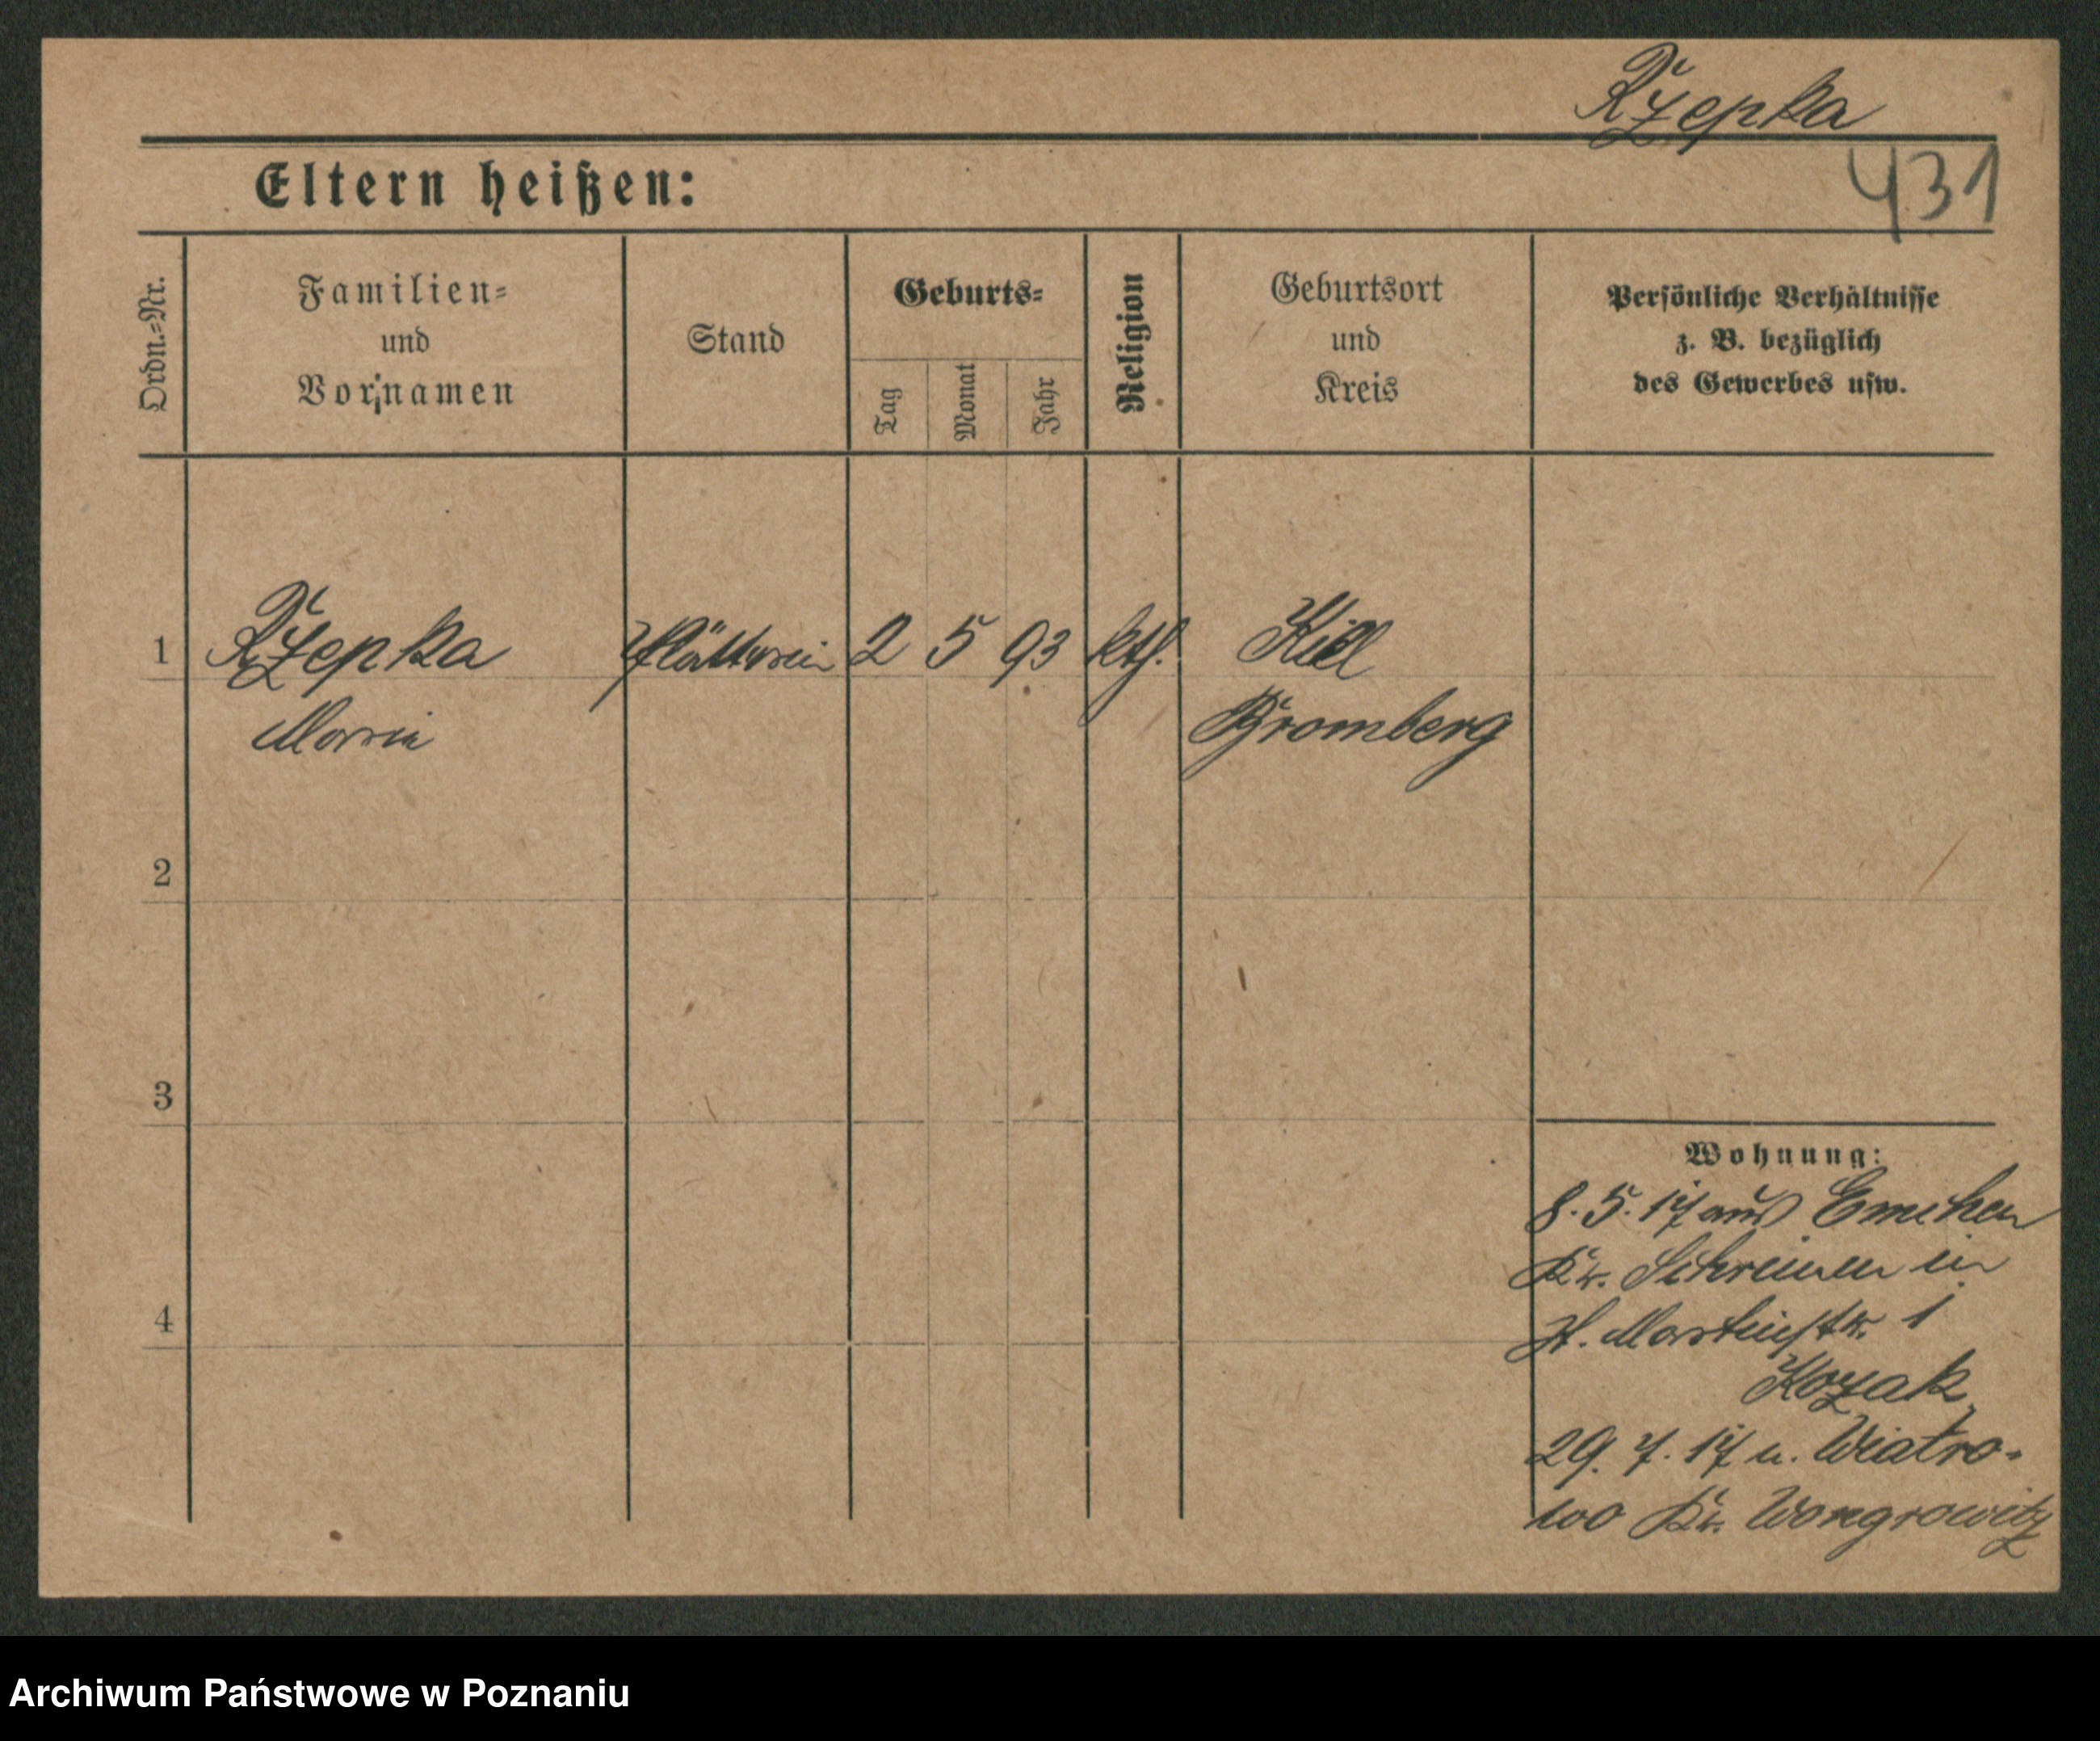 Rzepka
431
Eltern heißen:
Ordn.=Nr.
Familien=
und
Vornamen
Stand
Geburts=
Tag
Monat
Jahr
Religion
Geburtsort
und
Kreis
Persönliche Verhältnisse
z. B. bezüglich
des Gewerbes usw.
1
Rzepka
Plätterin
2
5
93
kth.
Kiel
Maria
Bromberg
2
3
4
Wohnung:
8. 5. 17 aus Emchen
Kr. Schrimm in
St. Martinstr. 1
Kozak
29. 7. 17 n. Wiatro-
wo Kr. Wongrowitz
Archiwum Państwowe w Poznaniu